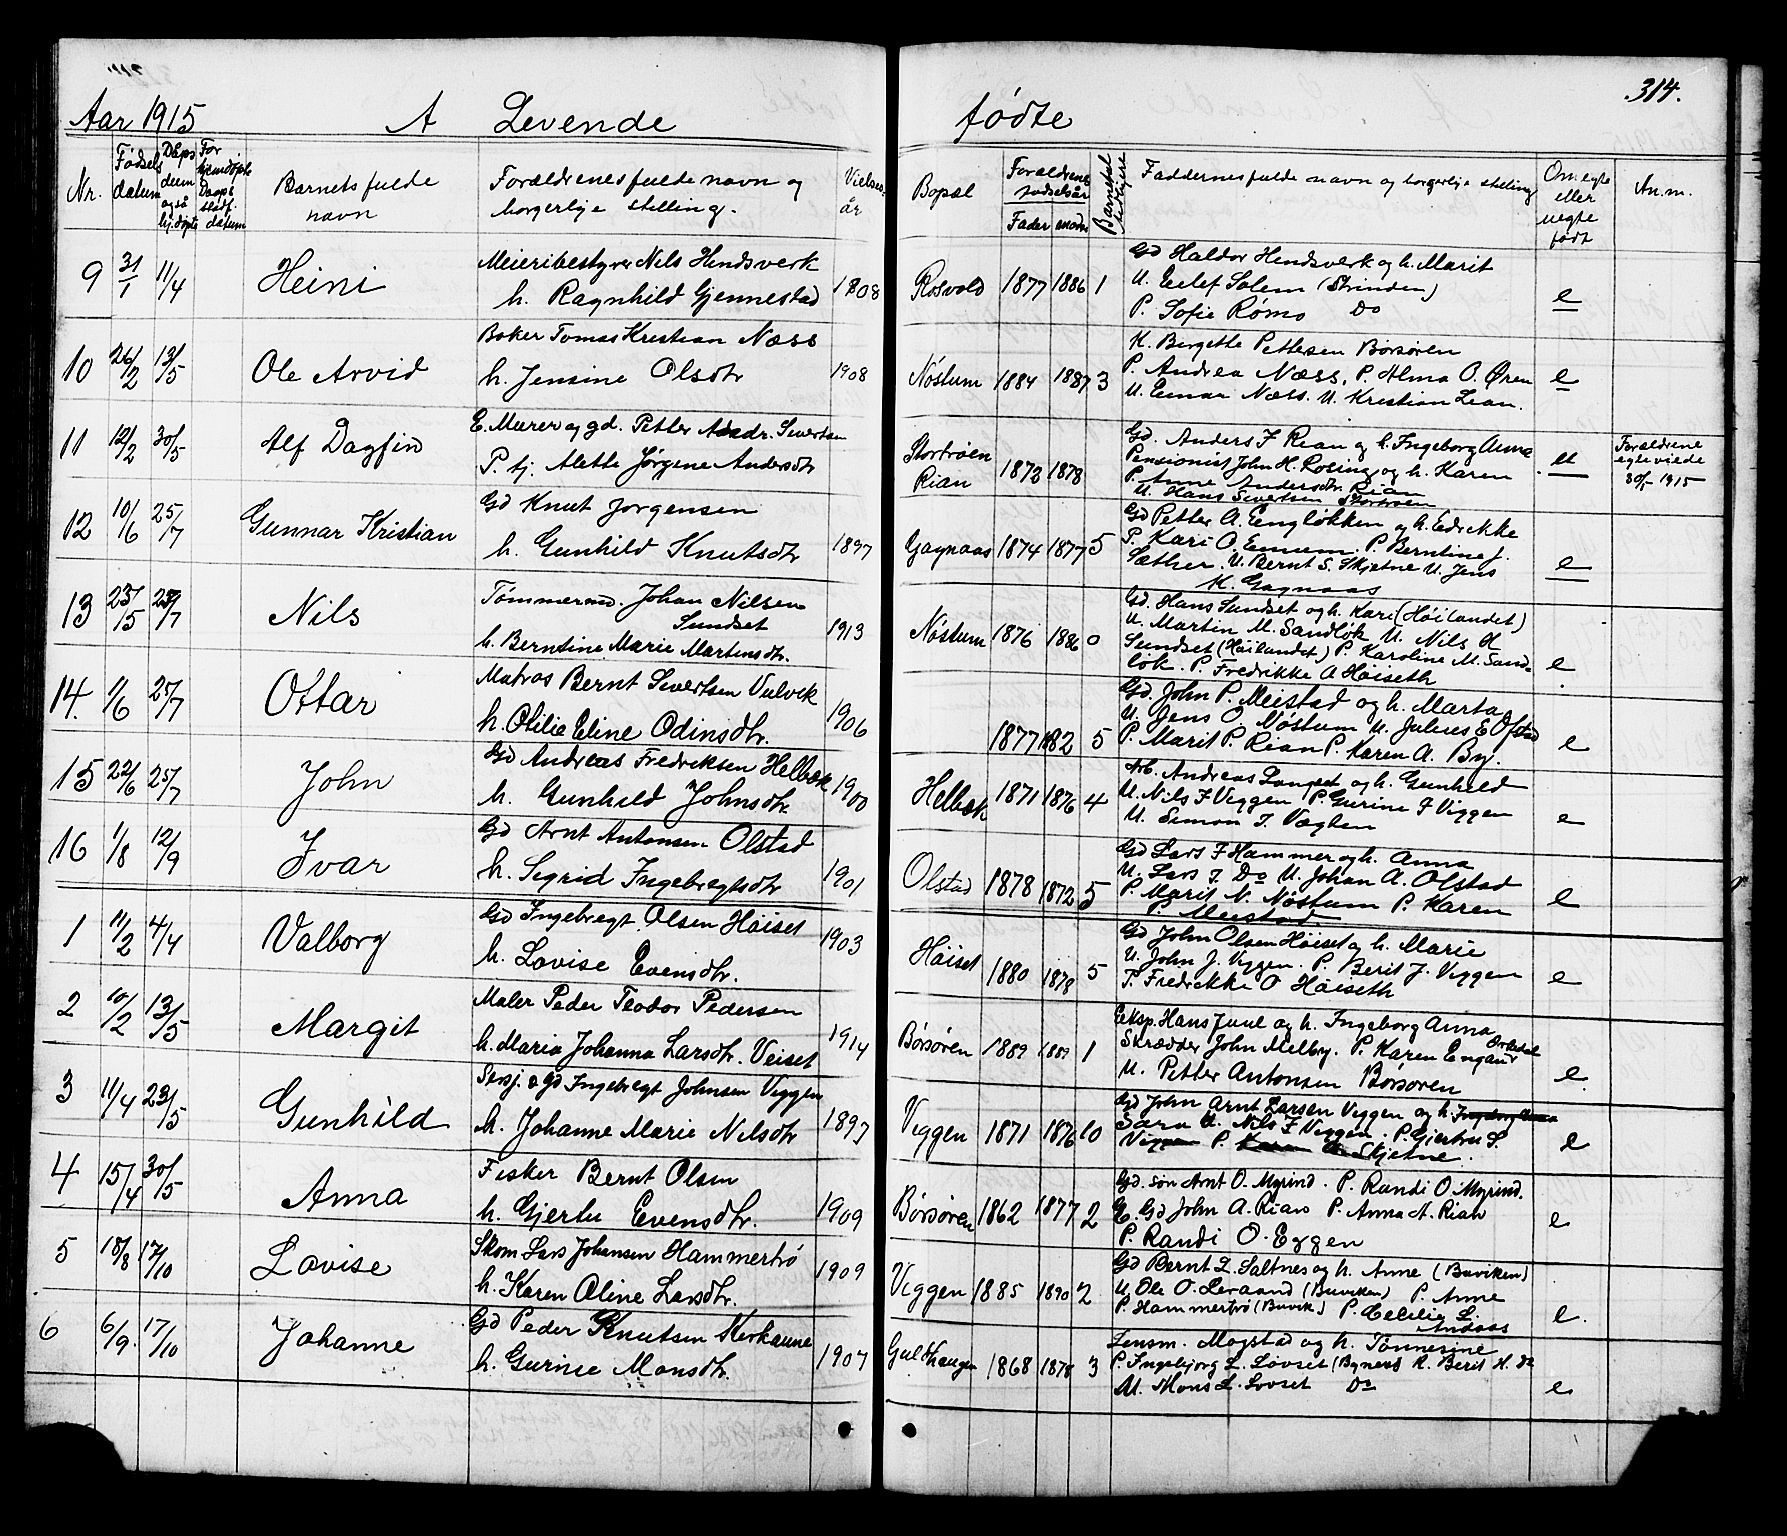 314.
Aar 1915 A Levende fødte
Nr. Fødsels datum Daps datum også hj.døpte For hjemdøpte Daaps stadf. datum Barnets fulde navn Forældrenes fulde navn og borgerlige stilling. Vielses år Bopæl Forældrenes fødselsår Fader moder Barnets Faddernes fulde navn og borgerlige stilling Om egte eller uegte født An.m.
9 31/1 11/4 Heini Meieribestyrer Nils Hendsverk 1808 Rosvold 1877 1886 1 Gd Haldor Hendsverk og h. Marit e
h. Ragnhild Gjennestad U. Eelef Solem (Strinden)
P. Sofie Rømo Do
10 26/2 13/5 Ole Arvid Baker Tomas Kristian Næss 1908 Nøstum 1884 1887 3 K. Bergette Pettersen Børsøren e
h. Jensine Olsdtr P. Andrea Næss, P. Alma O. Øren
U. Einar Næss. U. Kristian Lian.
11 12/2 30/5 Alf Dagfin E. Murer og gd. Petter Andr. Sivertsen Stortrøen Rian 1873 1878 Gd. Anders F Rian og h. Ingeborg Anna u Forældrene egteviede 30/5 1915
P. tj. Alette Jørgene Andersdtr Pensionist John H. Rosing og h. Karen
P. Anne Andersdtr. Rian
U. Hans Sivertsen Stortroen
12 10/6 25/7 Gunnar Kristian Gd Knut Jorgensen 1897 Gagnaas 1874 1877 5 Gd Petter A. Engløkken og h. Edrikke e
h. Gunhild Knutsdtr P. Kari O. Ennem. P. Berntine J.
Sæther. U. Bernt S. Skjetne U. Jens
K. Gagnaas
13 23/5 25/7 Nils Tømmermd. Johan Nilsen Sundset 1913 Nøstum 1876 1886 0 Gd. Hans Sundset og h. Kari (Høilandet) e
h. Berntine Marie Martensdtr. U. Martin M. Sandløk U. Nils H
Sundset (Høilandet) P. Karoline M. Sand-
løk. P. Fredrikke A Høiseth
14. 1/6 25/7 Ottar Matros Bernt Sivertsen Vulvik 1906 1877 1882 5 Gd. John P. Meistad og h. Marta e
h. Otilie Eline Odinsdtr. U. Jens O. Nøstum U. Julius E Ofstad
P. Marit P. Rian P. Karen A. By.
15 22/6 25/7 John Gd Andreas Fredriksen Helbæk 1900 Helbæk 1871 1876 4 Arb. Andreas Langset og h. Gunhild e
h. Gunhild Johnsdtr. U. Nils F Viggen P. Gurine F Viggen
U. Simon I. Væglen
16 1/8 12/9 Ivar Gd Arnt Antonsen Olstad 1901 Olstad 1878 1872 5 Gd Lars F Hammer og h. Anna e
h. Sigrid Ingebregtsdtr U. Lars I. Do U. Johan A. Olstad
P. Marit N. Nøstum P. Karen
P. Meistad
1 11/2 4/4 Valborg Gd Ingebregt Olsen Høiset 1903 Høiset 1880 1878 5 Gd John Olsen Høiset og h. Marie e
h. Lovise Evensdtr. U. John J. Viggen. P. Berit J. Viggen
P. Fredrikke O Høiseth
2 10/2 13/5 Margit Maler Peder Teodor Pedersen 1914 Børsøren 1889 1889 1 Eksp. Hans Juul og h. Ingeborg Anna e
h. Maria Johanna Larsdtr. Veiset Skrædder John Melby. P. Karen Engaur Orkedal
U. Petter Antonsen Børsøren
3 11/4 23/5 Gunhild Stisj. & Gd Ingebregt Johnsen Viggen 1897 Viggen 1871 1876 10 Gd John Arnt Larsen Viggen og h. Ingeborg Anna e
h. Johanne Marie Nilsdtr Sara U. Nils F Viggen. P. Gjertru L.
Viggen P. Karen O. Skjetne.
4 15/4 30/5 Anna Fisker Bernt Olsen 1909 Børsøren 1862 1877 2 Gd. søn Arnt O. Myrind. P. Randi O Myrind. e
h. Gjertu Evensdtr. E. Gd John A. Rian P. Anna A. Rian
P. Randi O. Eggen
5 18/8 17/10 Lovise Skom Lars Johansen Hammertrø 1909 Viggen 1885 1890 2 Gd Bernt L. Saltnes og h. Anne (Buviken) e.
h. Karen Oline Larsdtr. U. Ole O. Leraand (Buviken) P. Anne
P. Hammertrø (Buvik.) P. Cecilie L.
Andaas
6 6/9. 17/10 Johanne Gd Peder Knutsen Kirkaune 1907 Gulthaugen 1868 1878 3 Lensm. Mogstad og h. Tønnesine e
h. Gurine Monsdtr. P. Ingebjørg L. Lovset (Bynes) K. Berit H. Do
U. Mons L. Lovset Do